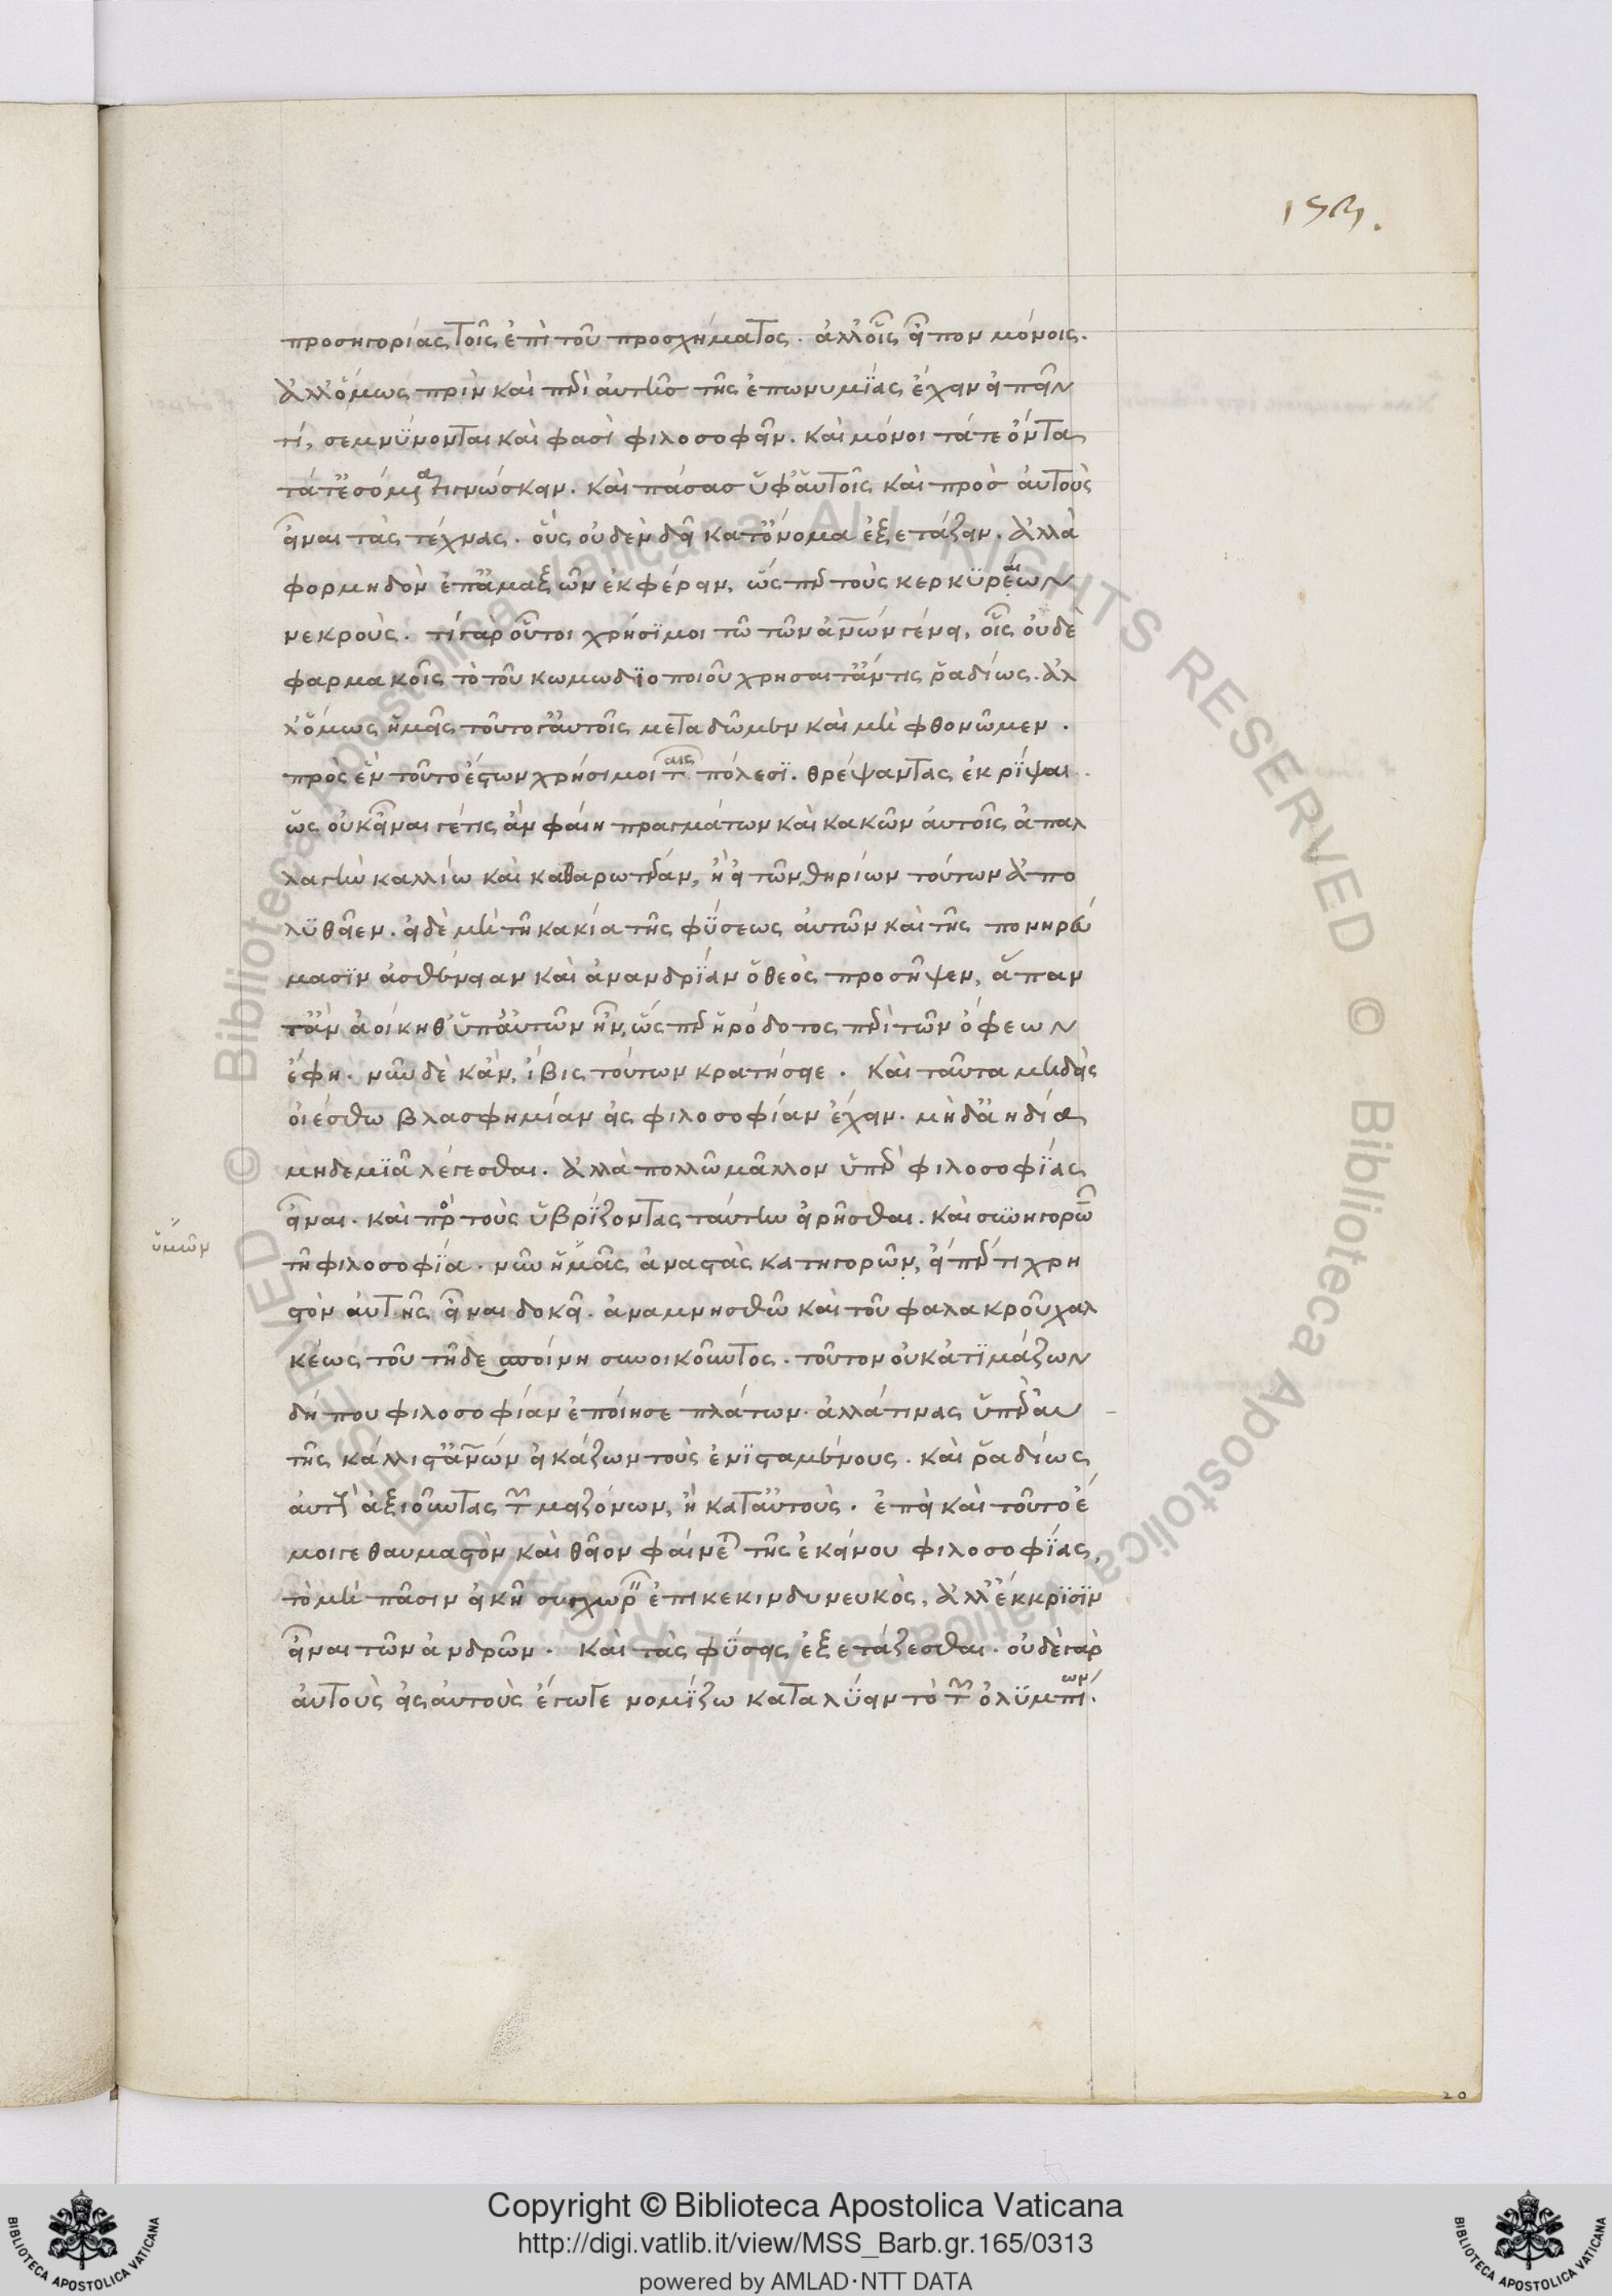 153.
προσηγορίας τοῖς ἐπὶ τοῦ προσχήματος. ἀλλ' οἷς εἶπον μόνοις.
ἀλλ' ὅμως πρὶν καὶ περὶ αὐτῆς τῆς ἐπωνυμίας ἔχειν εἰπεῖν
τί, σεμνύνονται καὶ φασὶ φιλοσοφεῖν. καὶ μόνοι τά τε ὄντα
τά τ' ἐσόμενα γιγνώσκειν. καὶ πάσας ὑφ' αὑτοῖς καὶ πρὸς αὑτοὺς
εἶναι τὰς τέχνας. οὓς οὐδὲν δεῖ κατ' ὄνομα ἐξετάζειν. ἀλλὰ
φορμηδὸν ἐπ' ἀμαξῶν ἐκφέρειν, ὥσπερ τοὺς κερκυρέαίων
νεκρούς. τί γὰρ οὗτοι χρήσιμοι τῶ τῶν ἀνων γένει, οἷς οὐδὲ
φαρμακοῖς τὸ τοῦ κωμωδιοποιοῦ χρήσαιτ' ἄν τις ῥαδίως. ἀλ
λ' ὅμως ἡμεῖς τοῦτό γ' αὐτοῖς μεταδῶμεν καὶ μὴ φθονῶμεν.
πρὸς ἓν τοῦτο ἔστων χρήσιμοι ταῖς πόλεσι. θρέψαντας ἐκρίψαι.
ὡς οὐκ εἶναι γέ τις ἂν φαίη πραγμάτων καὶ κακῶν αὐτοῖς ἀπαλ
λαγὴν καλλίω καὶ καθαρωτέραν, ἢ εἰ τῶν θηρίων τούτων ἀπο
λυθεῖεν. εἰ δὲ μὴ τῆ κακία τῆς φύσεως αὐτῶν καὶ τῆς πονηρεύ
μασιν ἀσθένειαν καὶ ἀνανδρίαν ὁ θεὸς προσῆψεν, ἅπαν
τ' ἂν ἀοίκηθ' ὑπ' αὐτῶν ἦν, ὥσπερ ἡρόδοτος περὶ τῶν ὄφεων
ἔφη. νῦν δὲ κἂν, ἴβις τούτων κρατήσειε. καὶ ταῦτα μηδεὶς
οἰέσθω βλασφημίαν εἰς φιλοσοφίαν ἔχειν. μὴ δ' ἀηδία
μηδεμιᾶ λέγεσθαι. ἀλλὰ πολλῶ μᾶλλον ὑπὲρ φιλοσοφίας
εἶναι. καὶ πρὸς τοὺς ὑβρίζοντας ταύτην εἰρῆσθαι. καὶ συνηγορῶν
ὑμῶν
τῆ φιλοσοφία. νῦν ἡμᾶς ἀναστὰς κατηγορῶν, εἴπερ τι χρη
στὸν αὐτῆς εἶναι δοκεῖ. ἀναμνησθῶ καὶ τοῦ φαλακροῦ χαλ
κέως τοῦ τῆ δεσποίνη συνοικοῦντος. τοῦτον οὐκ ἀτιμάζων
δήπου φιλοσοφίαν ἐποίησε πλάτων. ἀλλά τινας ὑπὲρ αὐ
τῆς κάλλιστ' ἀνων εἰκάζων τοὺς ἐνισταμένους. καὶ ῥαδίως
αὑτοὺς ἀξιοῦντας τῶν μειζόνων, ἢ κατ' αὐτούς. ἐπεὶ καὶ τοῦτο ἔ
μοιγε θαυμαστὸν καὶ θεῖον φαίνεται τῆς ἐκείνου φιλοσοφίας,
τὸ μὴ πᾶσιν εἰκῆ συγχωρεῖν ἐπικεκινδυνευκὸς, ἀλλ' ἔκκρισιν
εἶναι τῶν ἀνδρῶν. καὶ τὰς φύσεις ἐξετάζεσθαι. οὐδὲ γὰρ
αὐτοὺς εἰς αὑτοὺς ἔγωγε νομίζω καταλύειν τὸ τῶν ὀλυμπίων.
20
Copyright © Biblioteca Apostolica Vaticana
http://digi.vatlib.it/view/MSS_Barb.gr.165/0313
powered by AMLAD·NTT DATA